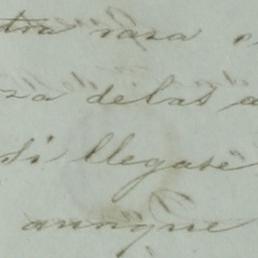 tra rasa
sa de las a
Si llegase
aunque